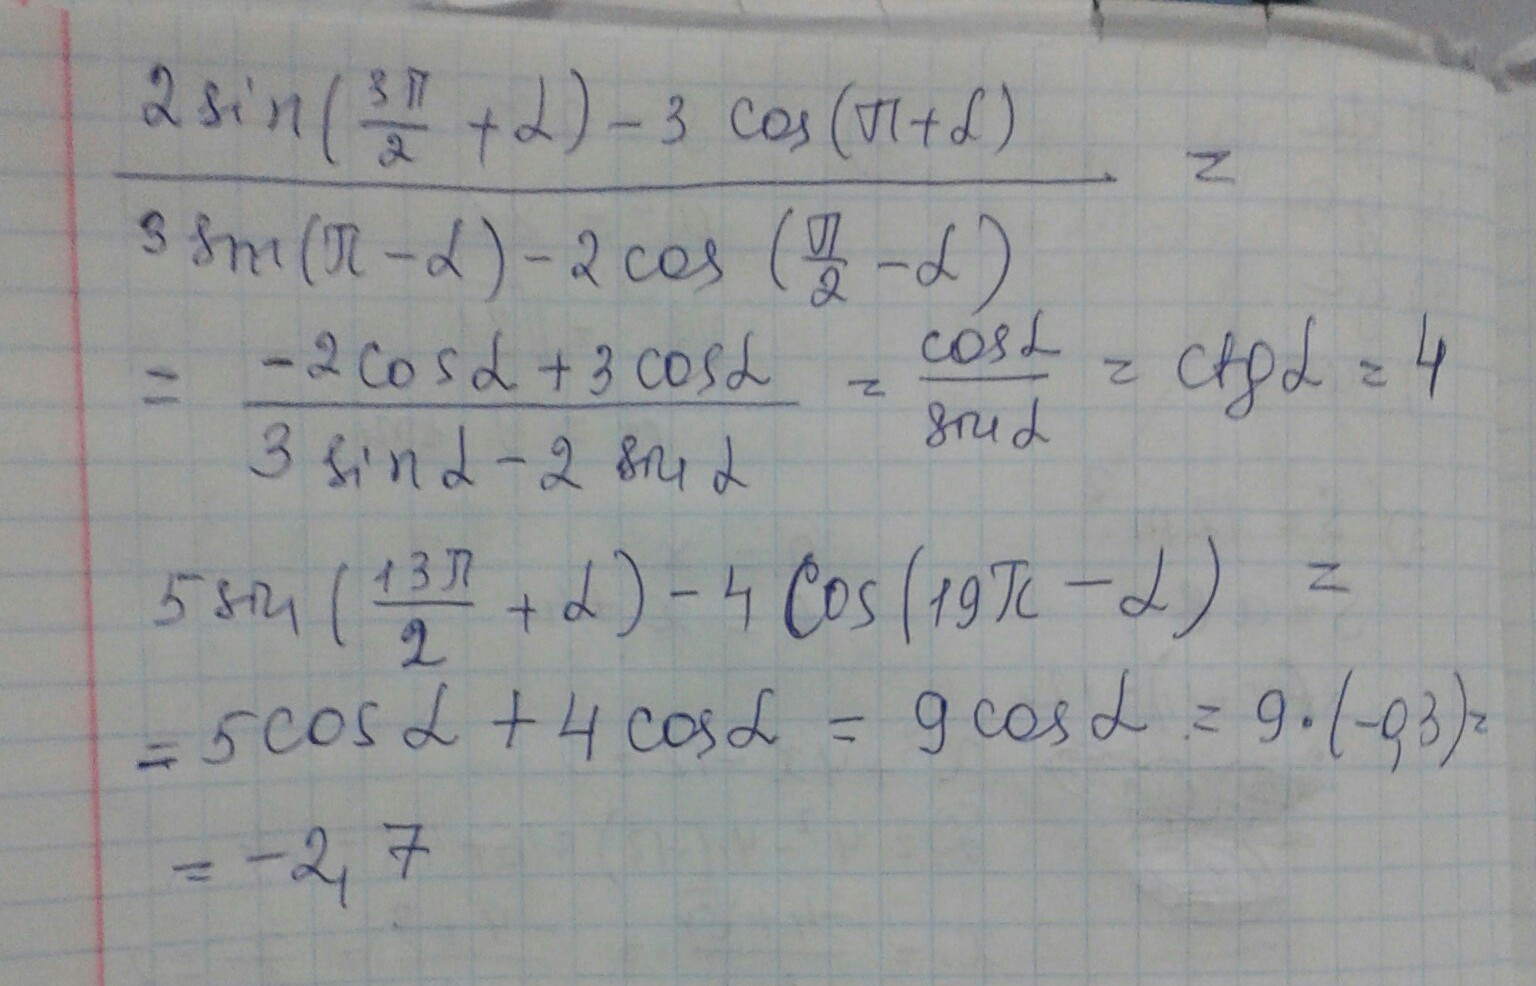 2 sin(3π/2 + α) - 3 cos(π+α)
=
3 sin(π - α) - 2 cos (π/2 - α)
= -2cosα + 3 cosα / 3 sinα - 2 sinα = cosα / sinα = ctgα = 4
5 sin (13π/2 + α) - 4 Cos(19π - α) =
= 5cosα + 4 cosα = 9 cosα = 9·(-0,3)=
= -2,7